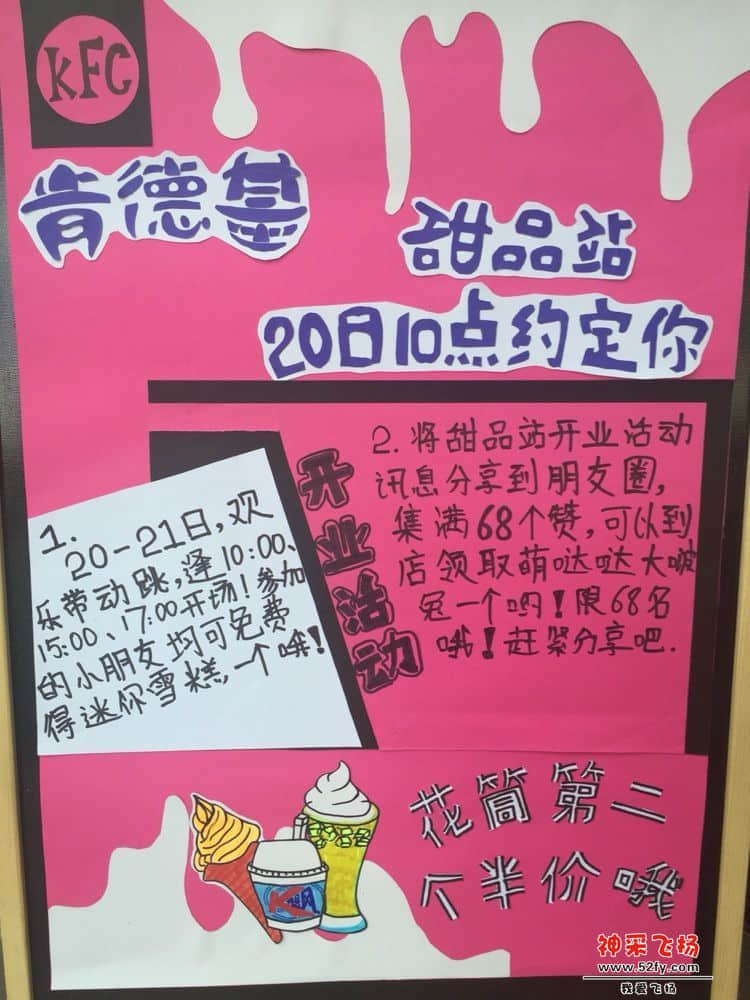 KFC
肯德基
甜品站
20日10点约定你
开业活动
1.
20-21日,欢
乐带动跳,逢10:00、
15:00、17:00开场!参加
的小朋友均可免费
得迷你雪糕,一个哦!
2.将甜品站开业活动
讯息分享到朋友圈,
集满68个赞,可以到
店领取萌哒哒大啵
兔一个哟!限68名
哦!赶紧分享吧.
花筒第二
个半价哦
神采飞扬
www.52fy.com
我爱飞扬